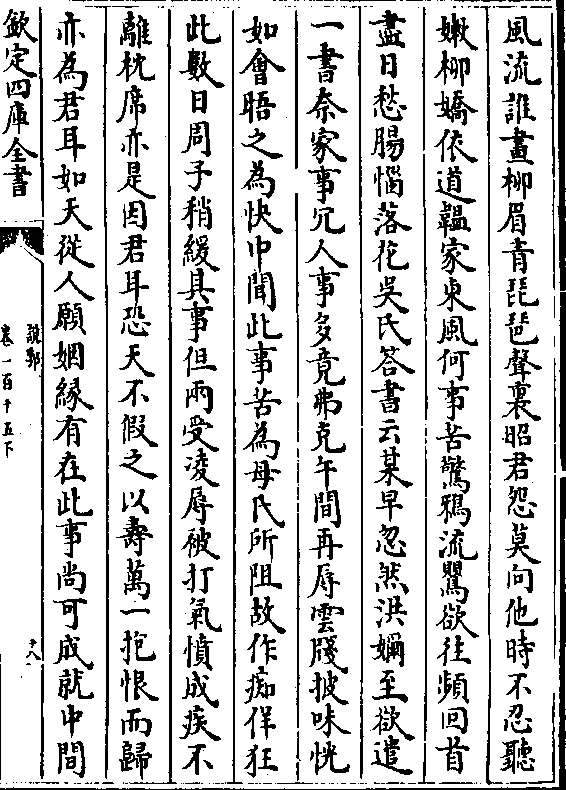 風流誰畫柳眉青琵琶聲裏昭君怨莫向他時不忍聽
嫩柳嬌依道韞家東風何事苦驚鴉流鶯欲往頻回首
盡日愁腸惱落花吳氏答書云某早忽然洪嫻至欲遣
一書奈家事冗人事多竟弗克午間再辱雲牋披味恍
如會晤之為快中聞此事苦為母氏所阻故作痴佯狂
此數日周子稍緩其事但兩受凌辱被打氣憤成疾不
離枕席亦是因君耳恐天不假之以壽萬一抱恨而歸
亦為君耳如天從人願姻緣有在此事尚可成就中間
欽定四庫全書
說郛
卷一百十五下
十八